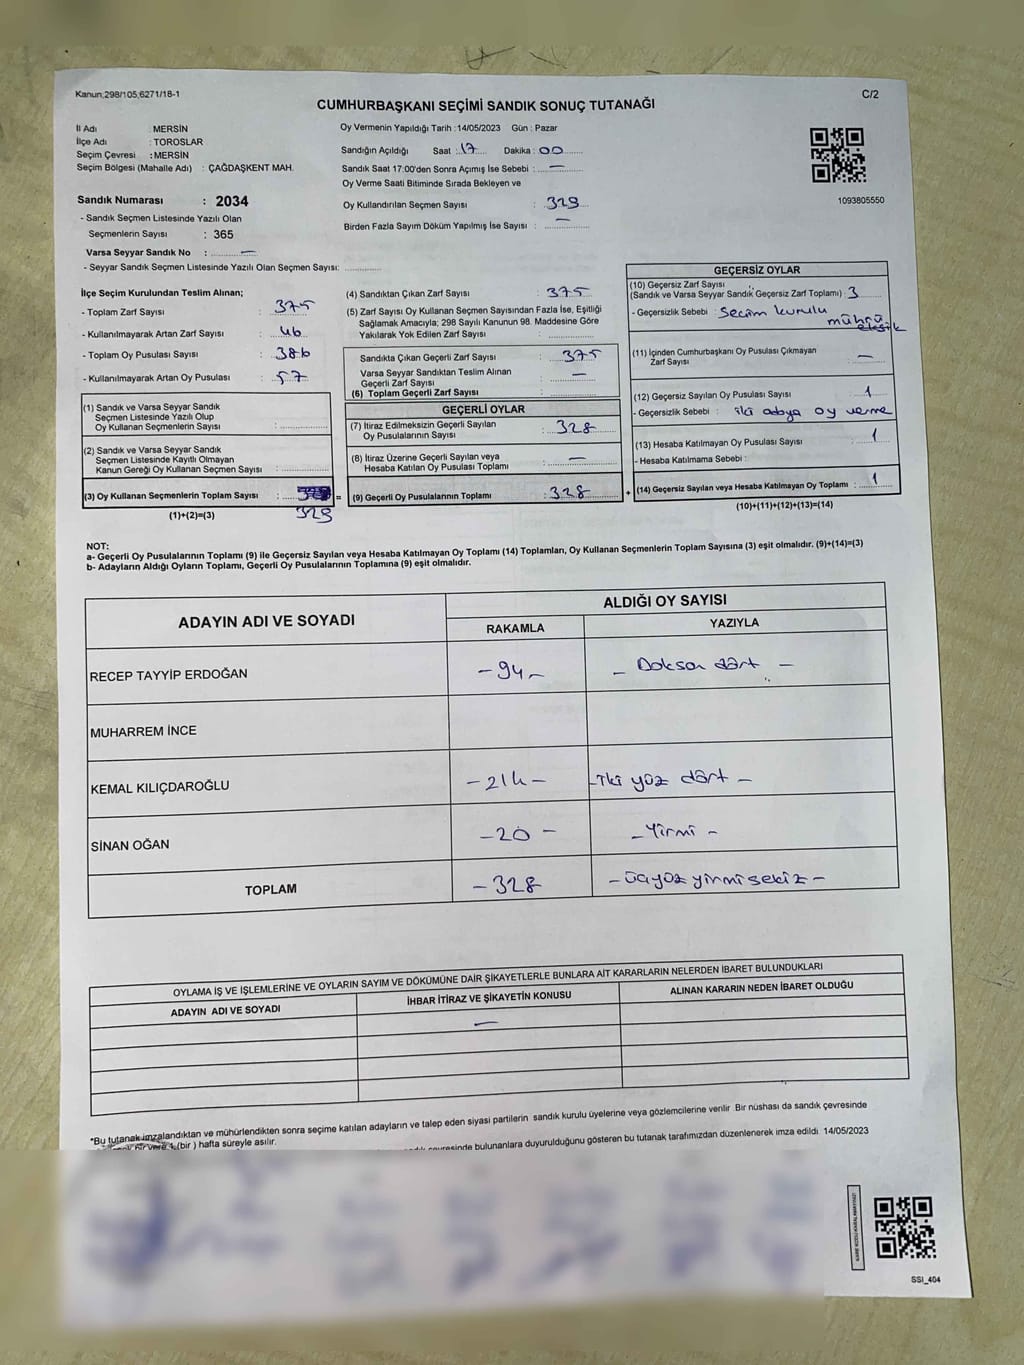 Kanun:298/105,6271/18-1
C/2
CUMHURBAŞKANI SEÇİMİ SANDIK SONUÇ TUTANAĞI
İl Adı : MERSİN
İlçe Adı : TOROSLAR
Seçim Çevresi : MERSİN
Seçim Bölgesi (Mahalle Adı) : ÇAĞDAŞKENT MAH.
Sandık Numarası : 2034
- Sandık Seçmen Listesinde Yazılı Olan
Seçmenlerin Sayısı : 365
Varsa Seyyar Sandık No : —
- Seyyar Sandık Seçmen Listesinde Yazılı Olan Seçmen Sayısı:
Oy Vermenin Yapıldığı Tarih :14/05/2023 Gün : Pazar
Sandığın Açıldığı Saat : 17 Dakika : 00
Sandık Saat 17:00'den Sonra Açımış İse Sebebi : —
Oy Verme Saati Bitiminde Sırada Bekleyen ve
Oy Kullandırılan Seçmen Sayısı : 329
Birden Fazla Sayım Döküm Yapılmış İse Sayısı : —
1093805550
İlçe Seçim Kurulundan Teslim Alınan;
- Toplam Zarf Sayısı : 375
- Kullanılmayarak Artan Zarf Sayısı : 46
- Toplam Oy Pusulası Sayısı : 386
- Kullanılmayarak Artan Oy Pusulası : 57
(1) Sandık ve Varsa Seyyar Sandık
Seçmen Listesinde Yazılı Olup
Oy Kullanan Seçmenlerin Sayısı :
(2) Sandık ve Varsa Seyyar Sandık
Seçmen Listesinde Kayıtlı Olmayan
Kanun Gereği Oy Kullanan Seçmen Sayısı :
(3) Oy Kullanan Seçmenlerin Toplam Sayısı : =
329
(1)+(2)=(3)
(4) Sandıktan Çıkan Zarf Sayısı : 375
(5) Zarf Sayısı Oy Kullanan Seçmen Sayısından Fazla İse, Eşitliği
Sağlamak Amacıyla; 298 Sayılı Kanunun 98. Maddesine Göre
Yakılarak Yok Edilen Zarf Sayısı :
Sandıkta Çıkan Geçerli Zarf Sayısı : 375
Varsa Seyyar Sandıktan Teslim Alınan
Geçerli Zarf Sayısı : —
(6) Toplam Geçerli Zarf Sayısı :
GEÇERLİ OYLAR
(7) İtiraz Edilmeksizin Geçerli Sayılan
Oy Pusulalarının Sayısı : 328
(8) İtiraz Üzerine Geçerli Sayılan veya
Hesaba Katılan Oy Pusulası Toplamı : —
(9) Geçerli Oy Pusulalarının Toplamı : 328 +
GEÇERSİZ OYLAR
(10) Geçersiz Zarf Sayısı
(Sandık ve Varsa Seyyar Sandık Geçersiz Zarf Toplamı) : 3
- Geçersizlik Sebebi : Seçim kurulu
mührü
eksik
(11) İçinden Cumhurbaşkanı Oy Pusulası Çıkmayan
Zarf Sayısı : —
(12) Geçersiz Sayılan Oy Pusulası Sayısı : 1
- Geçersizlik Sebebi : iki adaya oy verme
(13) Hesaba Katılmayan Oy Pusulası Sayısı : 1
- Hesaba Katılmama Sebebi :
(14) Geçersiz Sayılan veya Hesaba Katılmayan Oy Toplamı : 1
(10)+(11)+(12)+(13)=(14)
NOT:
a- Geçerli Oy Pusulalarının Toplamı (9) ile Geçersiz Sayılan veya Hesaba Katılmayan Oy Toplamı (14) Toplamları, Oy Kullanan Seçmenlerin Toplam Sayısına (3) eşit olmalıdır. (9)+(14)=(3)
b- Adayların Aldığı Oyların Toplamı, Geçerli Oy Pusulalarının Toplamına (9) eşit olmalıdır.
ADAYIN ADI VE SOYADI
ALDIĞI OY SAYISI
RAKAMLA YAZIYLA
RECEP TAYYİP ERDOĞAN - 94 - - Doksan dört -
MUHARREM İNCE
KEMAL KILIÇDAROĞLU - 214 - - iki yüz dört -
SİNAN OĞAN - 20 - - Yirmi -
TOPLAM - 328 - üçyüz yirmi sekiz -
OYLAMA İŞ VE İŞLEMLERİNE VE OYLARIN SAYIM VE DÖKÜMÜNE DAİR ŞİKAYETLERLE BUNLARA AİT KARARLARIN NELERDEN İBARET BULUNDUKLARI
ADAYIN ADI VE SOYADI İHBAR İTİRAZ VE ŞİKAYETİN KONUSU ALINAN KARARIN NEDEN İBARET OLDUĞU
—
*Bu tutanak imzalandıktan ve mühürlendikten sonra seçime katılan adayların ve talep eden siyasi partilerin sandık kurulu üyelerine veya gözlemcilerine verilir Bir nüshası da sandık çevresinde
bir yere 1 (bir ) hafta süreyle asılır.
çevresinde bulunanlara duyurulduğunu gösteren bu tutanak tarafımızdan düzenlenerek imza edildi 14/05/2023
SSI_404